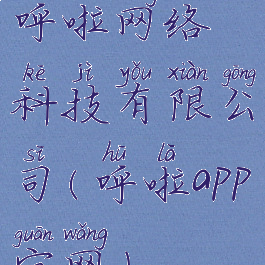 呼啦网络
kē jì yǒu xiàn gōng
科技有限公
sī hū lā
司(呼啦app
guān wǎng
官网)